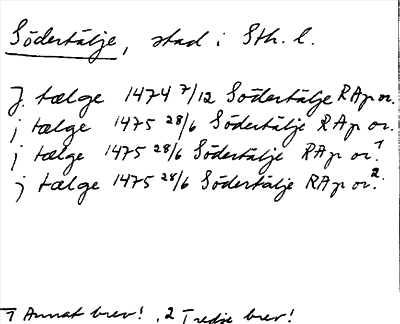 Södertälje, stad i Sth. l.
J tælge 1474 7/12 Södertälje RAp or.
j tælge 1475 28/6 Södertälje RAp or.
j tælge 1475 28/6 Södertälje RAp or.1
j tælge 1475 28/6 Södertälje RAp or.2
1 Annat brev! , 2 Tredje brev!